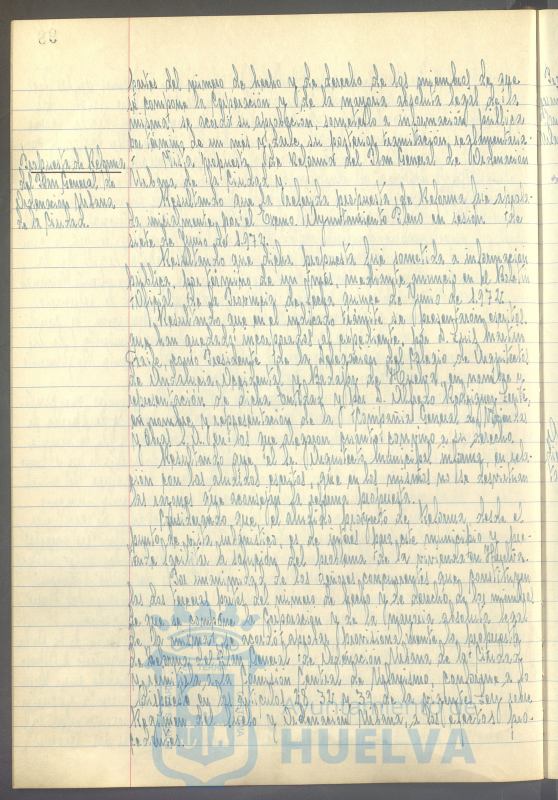 partes del número de hecho y de derecho de los miembros de que
se compone la Corporación y de la mayoría absoluta legal de la
misma, se acordó su aprobación, someterlo a información pública
en término de un mes y darle su posterior tramitación reglamentaria.
Propuesta de Reforma
del Plan General de
Ordenación Urbana
de la Ciudad.
Vista propuesta de Reforma del Plan General de Ordenación
Urbana de la Ciudad y
Resultando que la referida propuesta de Reforma fue aproba-
da inicialmente por el Excmo Ayuntamiento Pleno en sesión de
siete de Junio de 1.972.
Resultando que dicha propuesta fue sometida a información
pública, por término de un mes, mediante anuncio en el Boletín
Oficial de la Provincia de fecha quince de Junio de 1.972.
Resultando, que en el indicado trámite se presentaron escritos
que han quedado incorporados al expediente, por D. Martín
como Presidente de la Delegación del Colegio de Arquitectos
de Andalucía Occidental y Badajoz de Huelva, en nombre y
representación de dicha entidad y por D. Álvaro Rodríguez
en nombre y representación de la Compañía General de
S.A. en los que alegaron cuanto convino a su derecho.
Resultando que el Sr. Arquitecto Municipal informa en rela-
ción con los aludidos escritos, que en los mismos no se desvirtúan
las razones que aconsejan la reforma propuesta.
Considerando que el aludido proyecto de Reforma desde el
punto de vista urbanístico, es de interés para este municipio y
la solución del problema de la vivienda en Huelva.
Por unanimidad de los señores concurrentes, que constituyen
las dos terceras partes del número de hecho y de derecho de los miembros
de que se compone la Corporación y de la mayoría absoluta legal
de la misma, se acordó aprobar provisionalmente la propuesta
de Reforma del Plan General de Ordenación Urbana de la Ciudad
y remitirlo a la Comisión Central de Urbanismo, conforme a lo
dispuesto en artículos 28, 32 y 39 de la vigente Ley sobre
Régimen del Suelo y Ordenación Urbana, a los efectos pro-
cedentes.
Ayuntamiento de
HUELVA